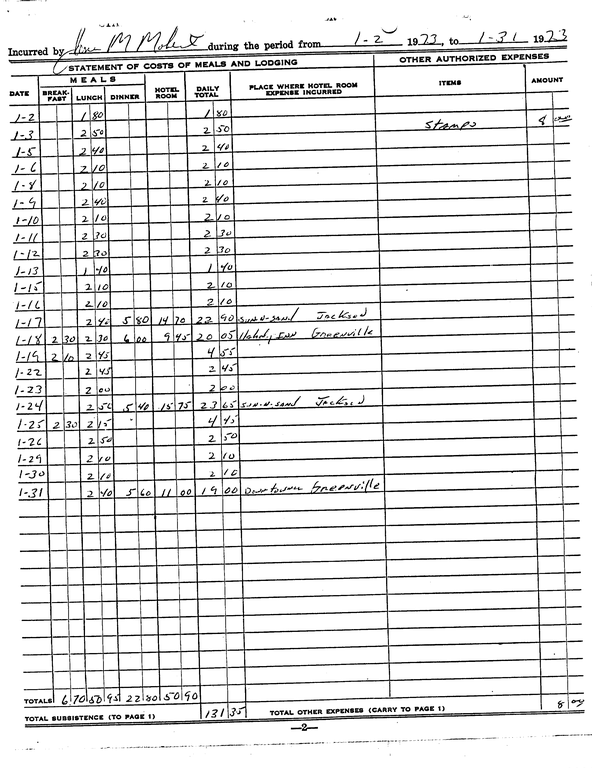 Incurred by M during the period from 1-2 1973, to 1-31 1973
STATEMENT OF COSTS OF MEALS AND LODGING OTHER AUTHORIZED EXPENSES
MEALS
DATE BREAK-FAST LUNCH DINNER HOTEL ROOM DAILY TOTAL PLACE WHERE HOTEL ROOM EXPENSE INCURRED ITEMS AMOUNT
1-2 1 80 1 80
1-3 2 50 2 50 Stamps 8 00
1-5 2 40 2 40
1-6 2 10 2 10
1-8 2 10 2 10
1-9 2 40 2 40
1-10 2 10 2 10
1-11 2 30 2 30
1-12 2 30 2 30
1-13 1 40 1 40
1-15 2 10 2 10
1-16 2 10 2 10
1-17 2 40 5 80 14 70 22 90 SUN-N-SAND Jackson
1-18 2 30 2 30 6 00 9 45 20 05 Holiday Inn Greenville
1-19 2 10 2 45 4 55
1-22 2 45 2 45
1-23 2 00 2 00
1-24 2 50 5 40 15 75 23 65 SUN-N-SAND Jackson
1-25 2 30 2 15 4 45
1-26 2 50 2 50
1-29 2 10 2 10
1-30 2 10 2 10
1-31 2 40 5 60 11 00 19 00 Downtowner Greenville
TOTALS 6 70 50 95 22 80 50 90
TOTAL SUBSISTENCE (TO PAGE 1) 131 35 TOTAL OTHER EXPENSES (CARRY TO PAGE 1) 8 00
—2—